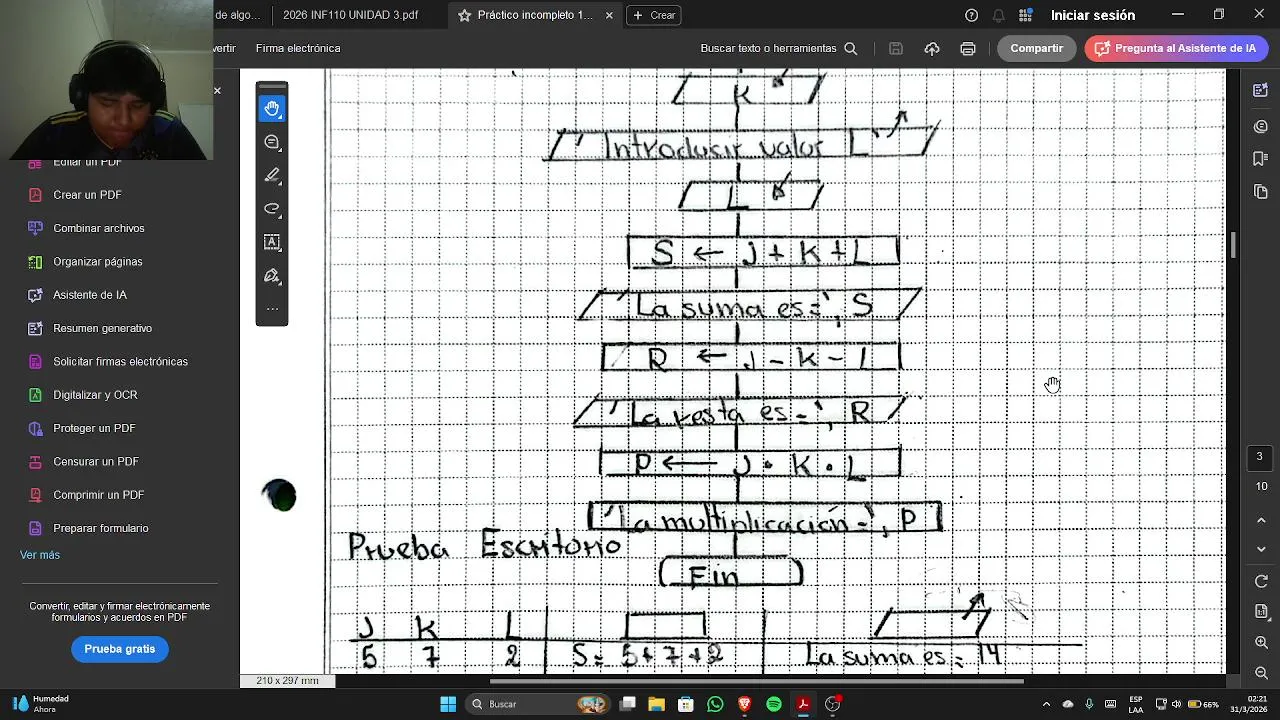 de algo...
2026 INF110 UNIDAD 3.pdf
Práctico incompleto 1...
Crear
Iniciar sesión
vertir
Firma electrónica
Buscar texto o herramientas
Compartir
Pregunta al Asistente de IA
Editar un PDF
Crear un PDF
Combinar archivos
Organizar páginas
Asistente de IA
Resumen generativo
Solicitar firmas electrónicas
Digitalizar y OCR
Proteger un PDF
Censurar un PDF
Comprimir un PDF
Preparar formulario
Ver más
Convierta, edite y firme electrónicamente
formularios y acuerdos en PDF
Prueba gratis
K
' Introducir valor L'
L
S ← J + K + L
' La suma es=', S
R ← J - K - L
' La resta es=', R
P ← J · K · L
' La multiplicación=', P
Prueba Escritorio
Fin
J K L
5 7 2 S= 5+7+2 La suma es= 14
3
10
210 x 297 mm
Humedad
Ahora
Buscar
ESP
LAA
66%
02:21
31/3/2026